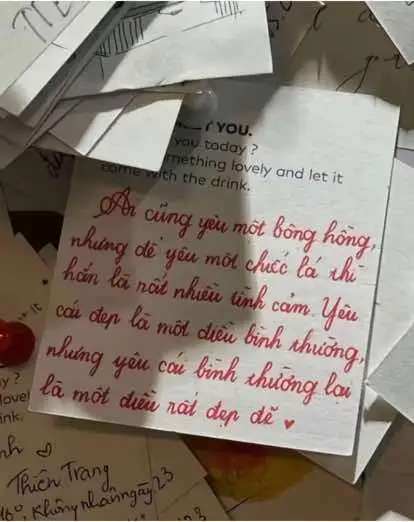 YOU.
you today ?
mething lovely and let it
come with the drink.
Ai cũng yêu một bông hồng,
nhưng để yêu một chiếc lá thì
hẳn là rất nhiều tình cảm. Yêu
cái đẹp là một điều bình thường,
nhưng yêu cái bình thường lại
là một điều rất đẹp đẽ ♥
it
y ?
lovel
ink.
nh ♡
Thiên Trang